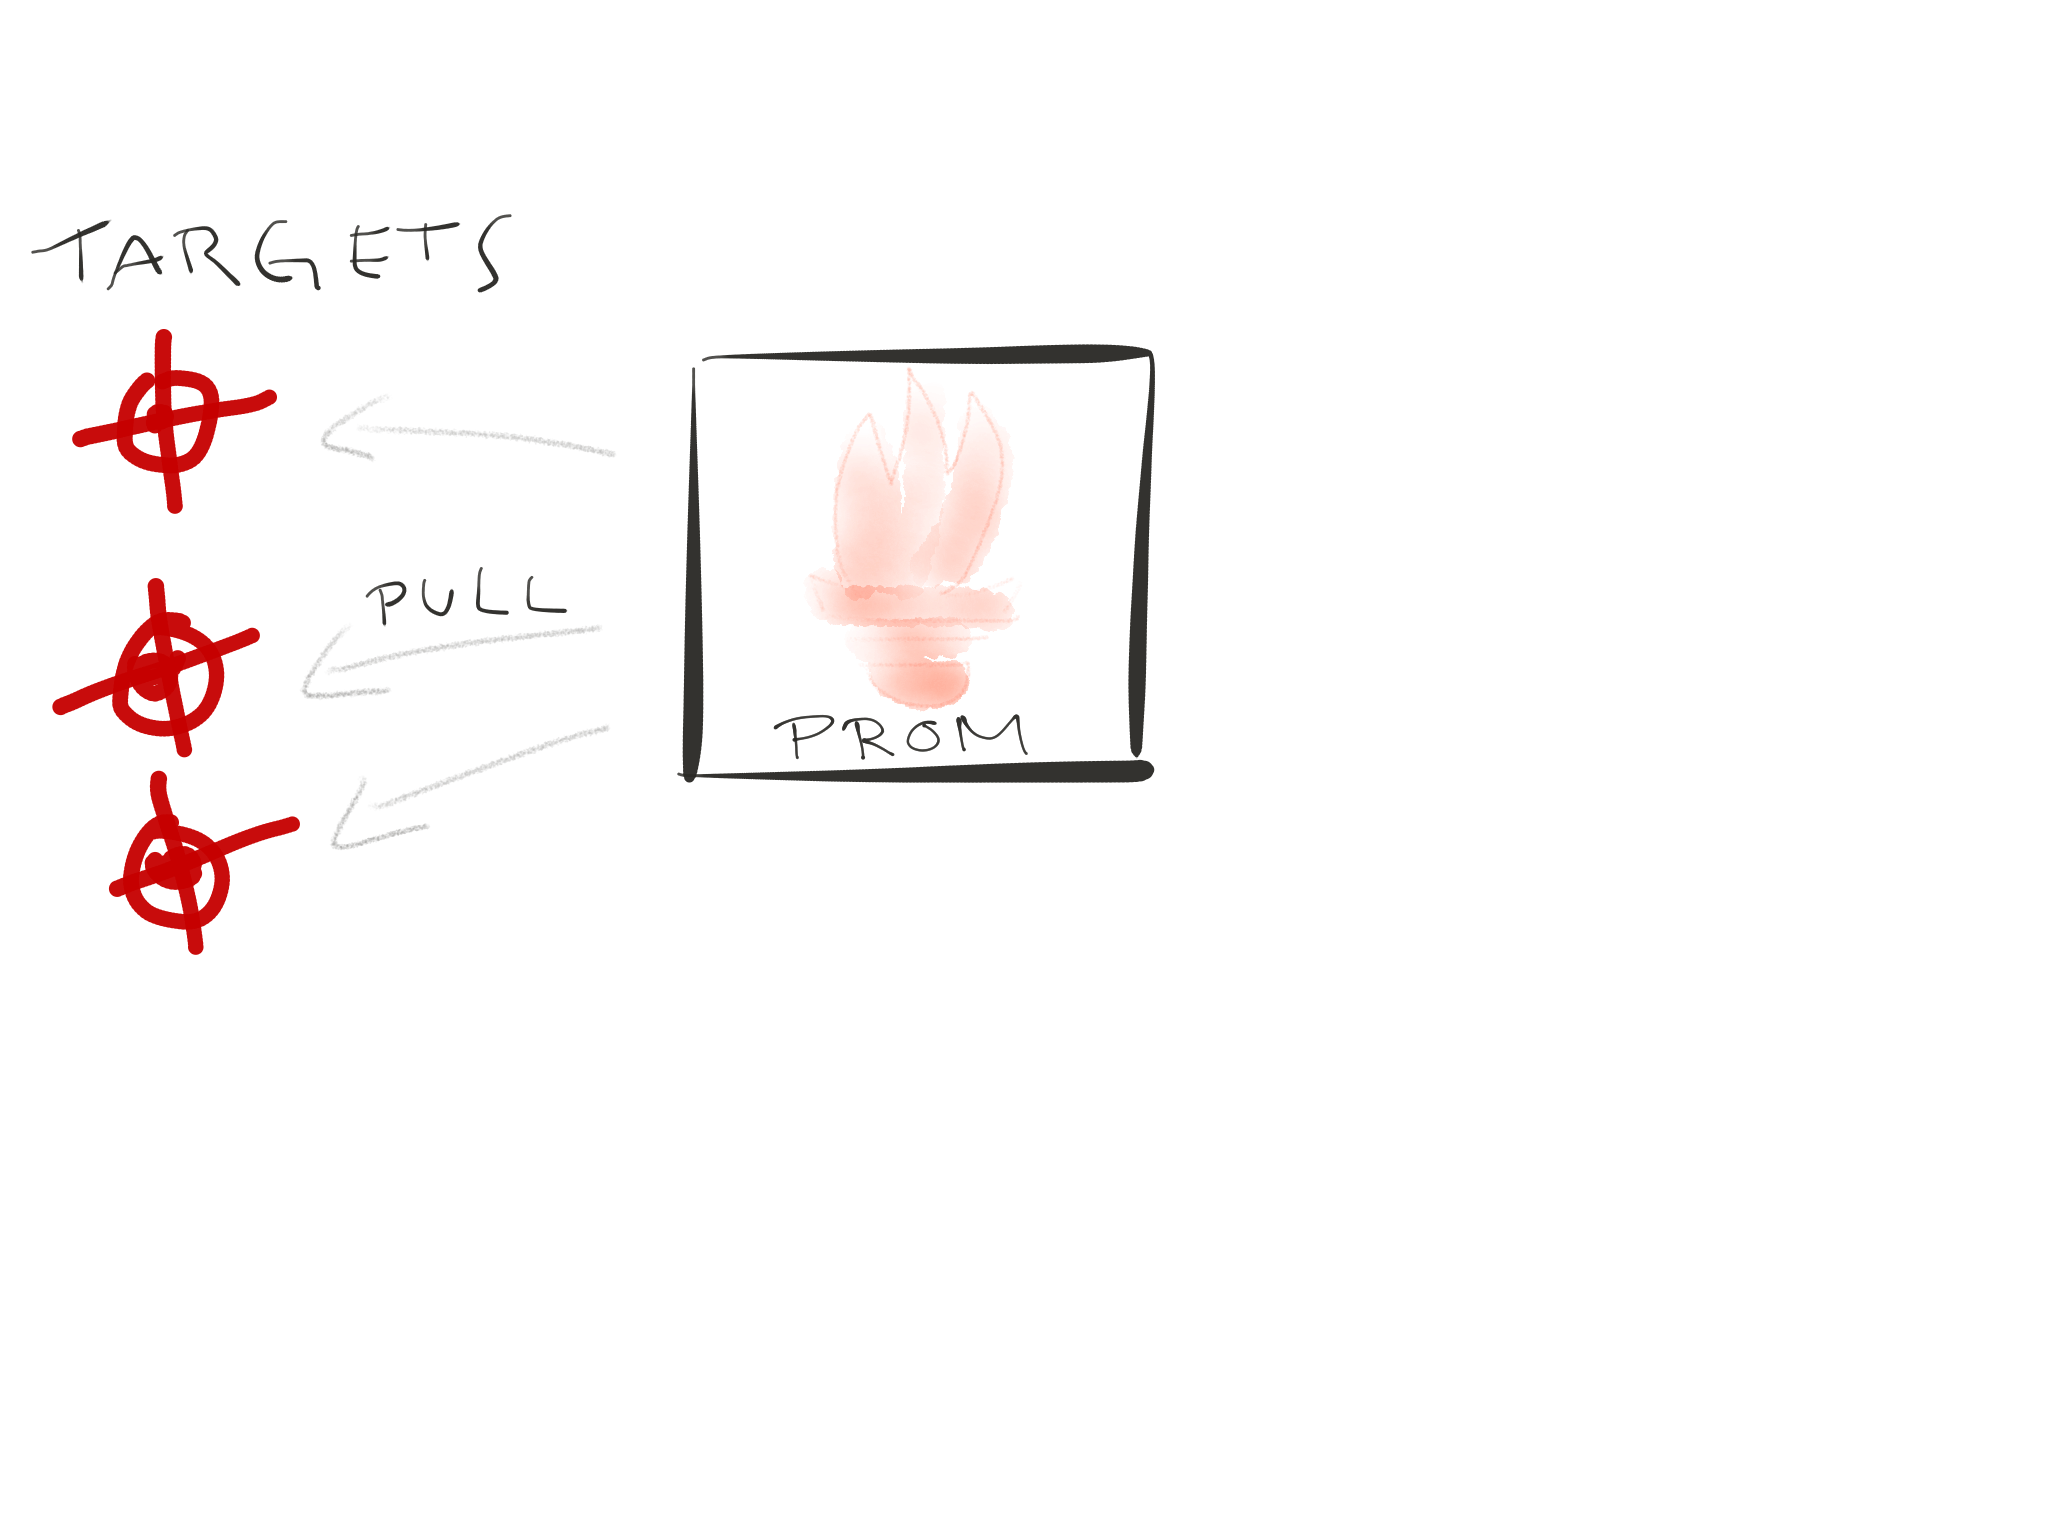 TARGETS
PULL
PROM